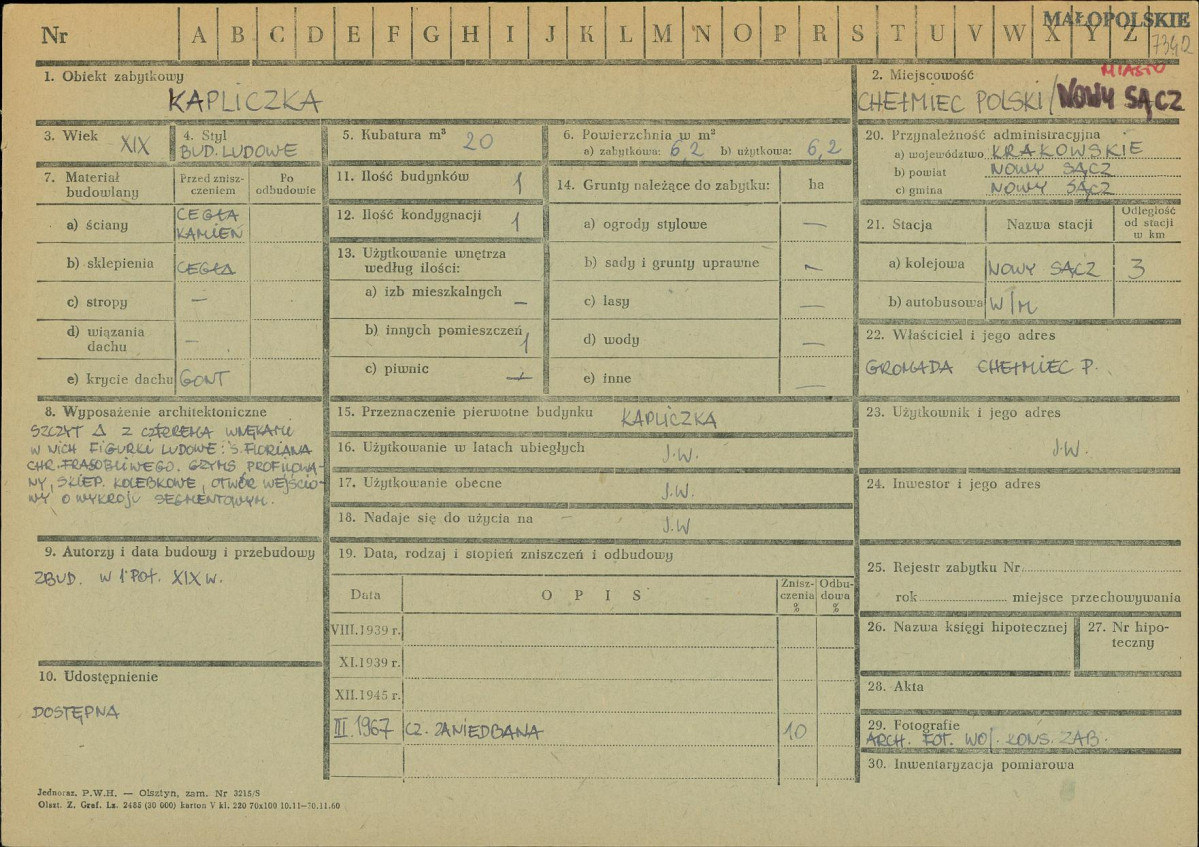 Nr A B C D E F G H I J K L M N O P R S T U V W X Y Z
MAŁOPOLSKIE
7342
1. Obiekt zabytkowy
KAPLICZKA
2. Miejscowość
MIASTO
CHEŁMIEC POLSKI / NOWY SĄCZ
3. Wiek XIX
4. Styl
BUD. LUDOWE
5. Kubatura m³ 20
6. Powierzchnia w m²
a) zabytkowa: 6,2 b) użytkowa: 6,2
7. Materiał budowlany
Przed zniszczeniem
Po odbudowie
a) ściany CEGŁA
KAMIEŃ
b) sklepienia CEGŁA
c) stropy —
d) wiązania dachu —
e) krycie dachu GONT
8. Wyposażenie architektoniczne
SZCZYT Δ Z CZTEREMA WNĘKAMI
W NICH FIGURKI LUDOWE: Ś. FLORIANA
CHR. FRASOBLIWEGO. GZYMS PROFILOWA-
NY, SKLEP. KOLEBKOWE, OTWÓR WEJŚCIO-
WY O WYKROJU SEGMENTOWYM.
9. Autorzy i data budowy i przebudowy
ZBUD. W 1 POŁ. XIX W.
10. Udostępnienie
DOSTĘPNA
11. Ilość budynków 1
12. Ilość kondygnacji 1
13. Użytkowanie wnętrza
według ilości:
a) izb mieszkalnych —
b) innych pomieszczeń 1
c) piwnic —
14. Grunty należące do zabytku: ha
a) ogrody stylowe —
b) sady i grunty uprawne —
c) lasy —
d) wody —
e) inne —
15. Przeznaczenie pierwotne budynku KAPLICZKA
16. Użytkowanie w latach ubiegłych J.W.
17. Użytkowanie obecne J.W.
18. Nadaje się do użycia na – J.W
19. Data, rodzaj i stopień zniszczeń i odbudowy
Data OPIS Zniszczenia % Odbudowa %
VIII.1939 r.
XI.1939 r.
XII.1945 r.
III.1967 CZ. ZANIEDBANA 10
20. Przynależność administracyjna
a) województwo KRAKOWSKIE
b) powiat NOWY SĄCZ
c) gmina NOWY SĄCZ
21. Stacja Nazwa stacji Odległość od stacji w km
a) kolejowa NOWY SĄCZ 3
b) autobusowa W/M
22. Właściciel i jego adres
GROMADA CHEŁMIEC P.
23. Użytkownik i jego adres
J.W.
24. Inwestor i jego adres
25. Rejestr zabytku Nr
rok miejsce przechowywania
26. Nazwa księgi hipotecznej
27. Nr hipoteczny
28. Akta
29. Fotografie
ARCH. FOT. WOJ. KONS. ZAB.
30. Inwentaryzacja pomiarowa
Jednoraz. P.W.H. — Olsztyn, zam. Nr 3215/S
Olszt. Z. Graf. Lz. 2485 (30 000) karton V kl. 220 70x100 10.11—30.11.60